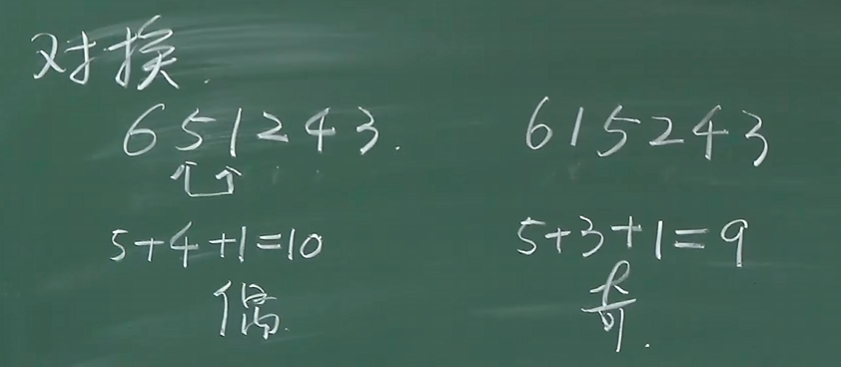 对换.
651243.
615243
5+4+1=10
5+3+1=9
偶.
奇.